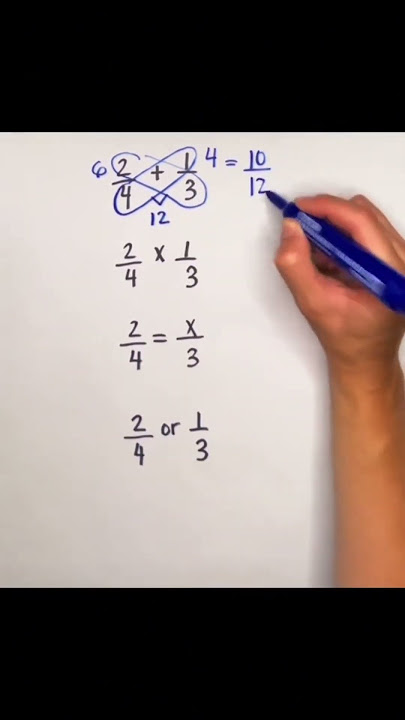 6 2/4 + 1/3 4 = 10/12
12
2/4 x 1/3
2/4 = x/3
2/4 or 1/3